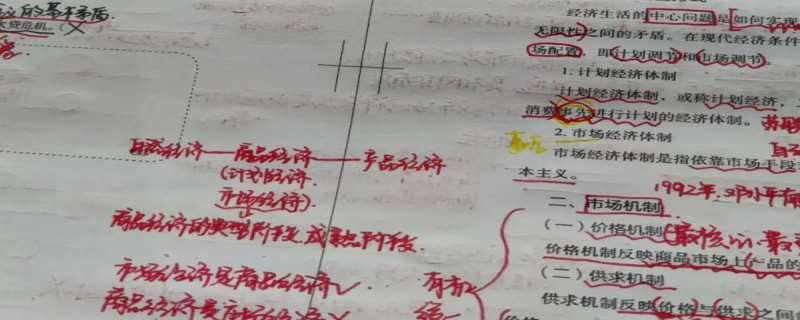 义的基本矛盾.
大烧危机。(X)
自然经济——商品经济——产品经济
(计划经济.
市场经济).
商品经济的典型阶段,成熟阶段.
市场经济是商品经济✓
商品经济是市场经济
经济生活的中心问题是如何实现
无限性之间的矛盾。在现代经济条件
场配置,即计划调节和市场调节。
1. 计划经济体制
计划经济体制,或称计划经济,
消费事先进行计划的经济体制。
事先
2. 市场经济体制
市场经济体制是指依靠市场手段
本主义。
1992年.邓小平南
二、市场机制
(一)价格机制(最核心.最
价格机制反映商品市场上产品的
(二)供求机制
供求机制反映价格与供求之间